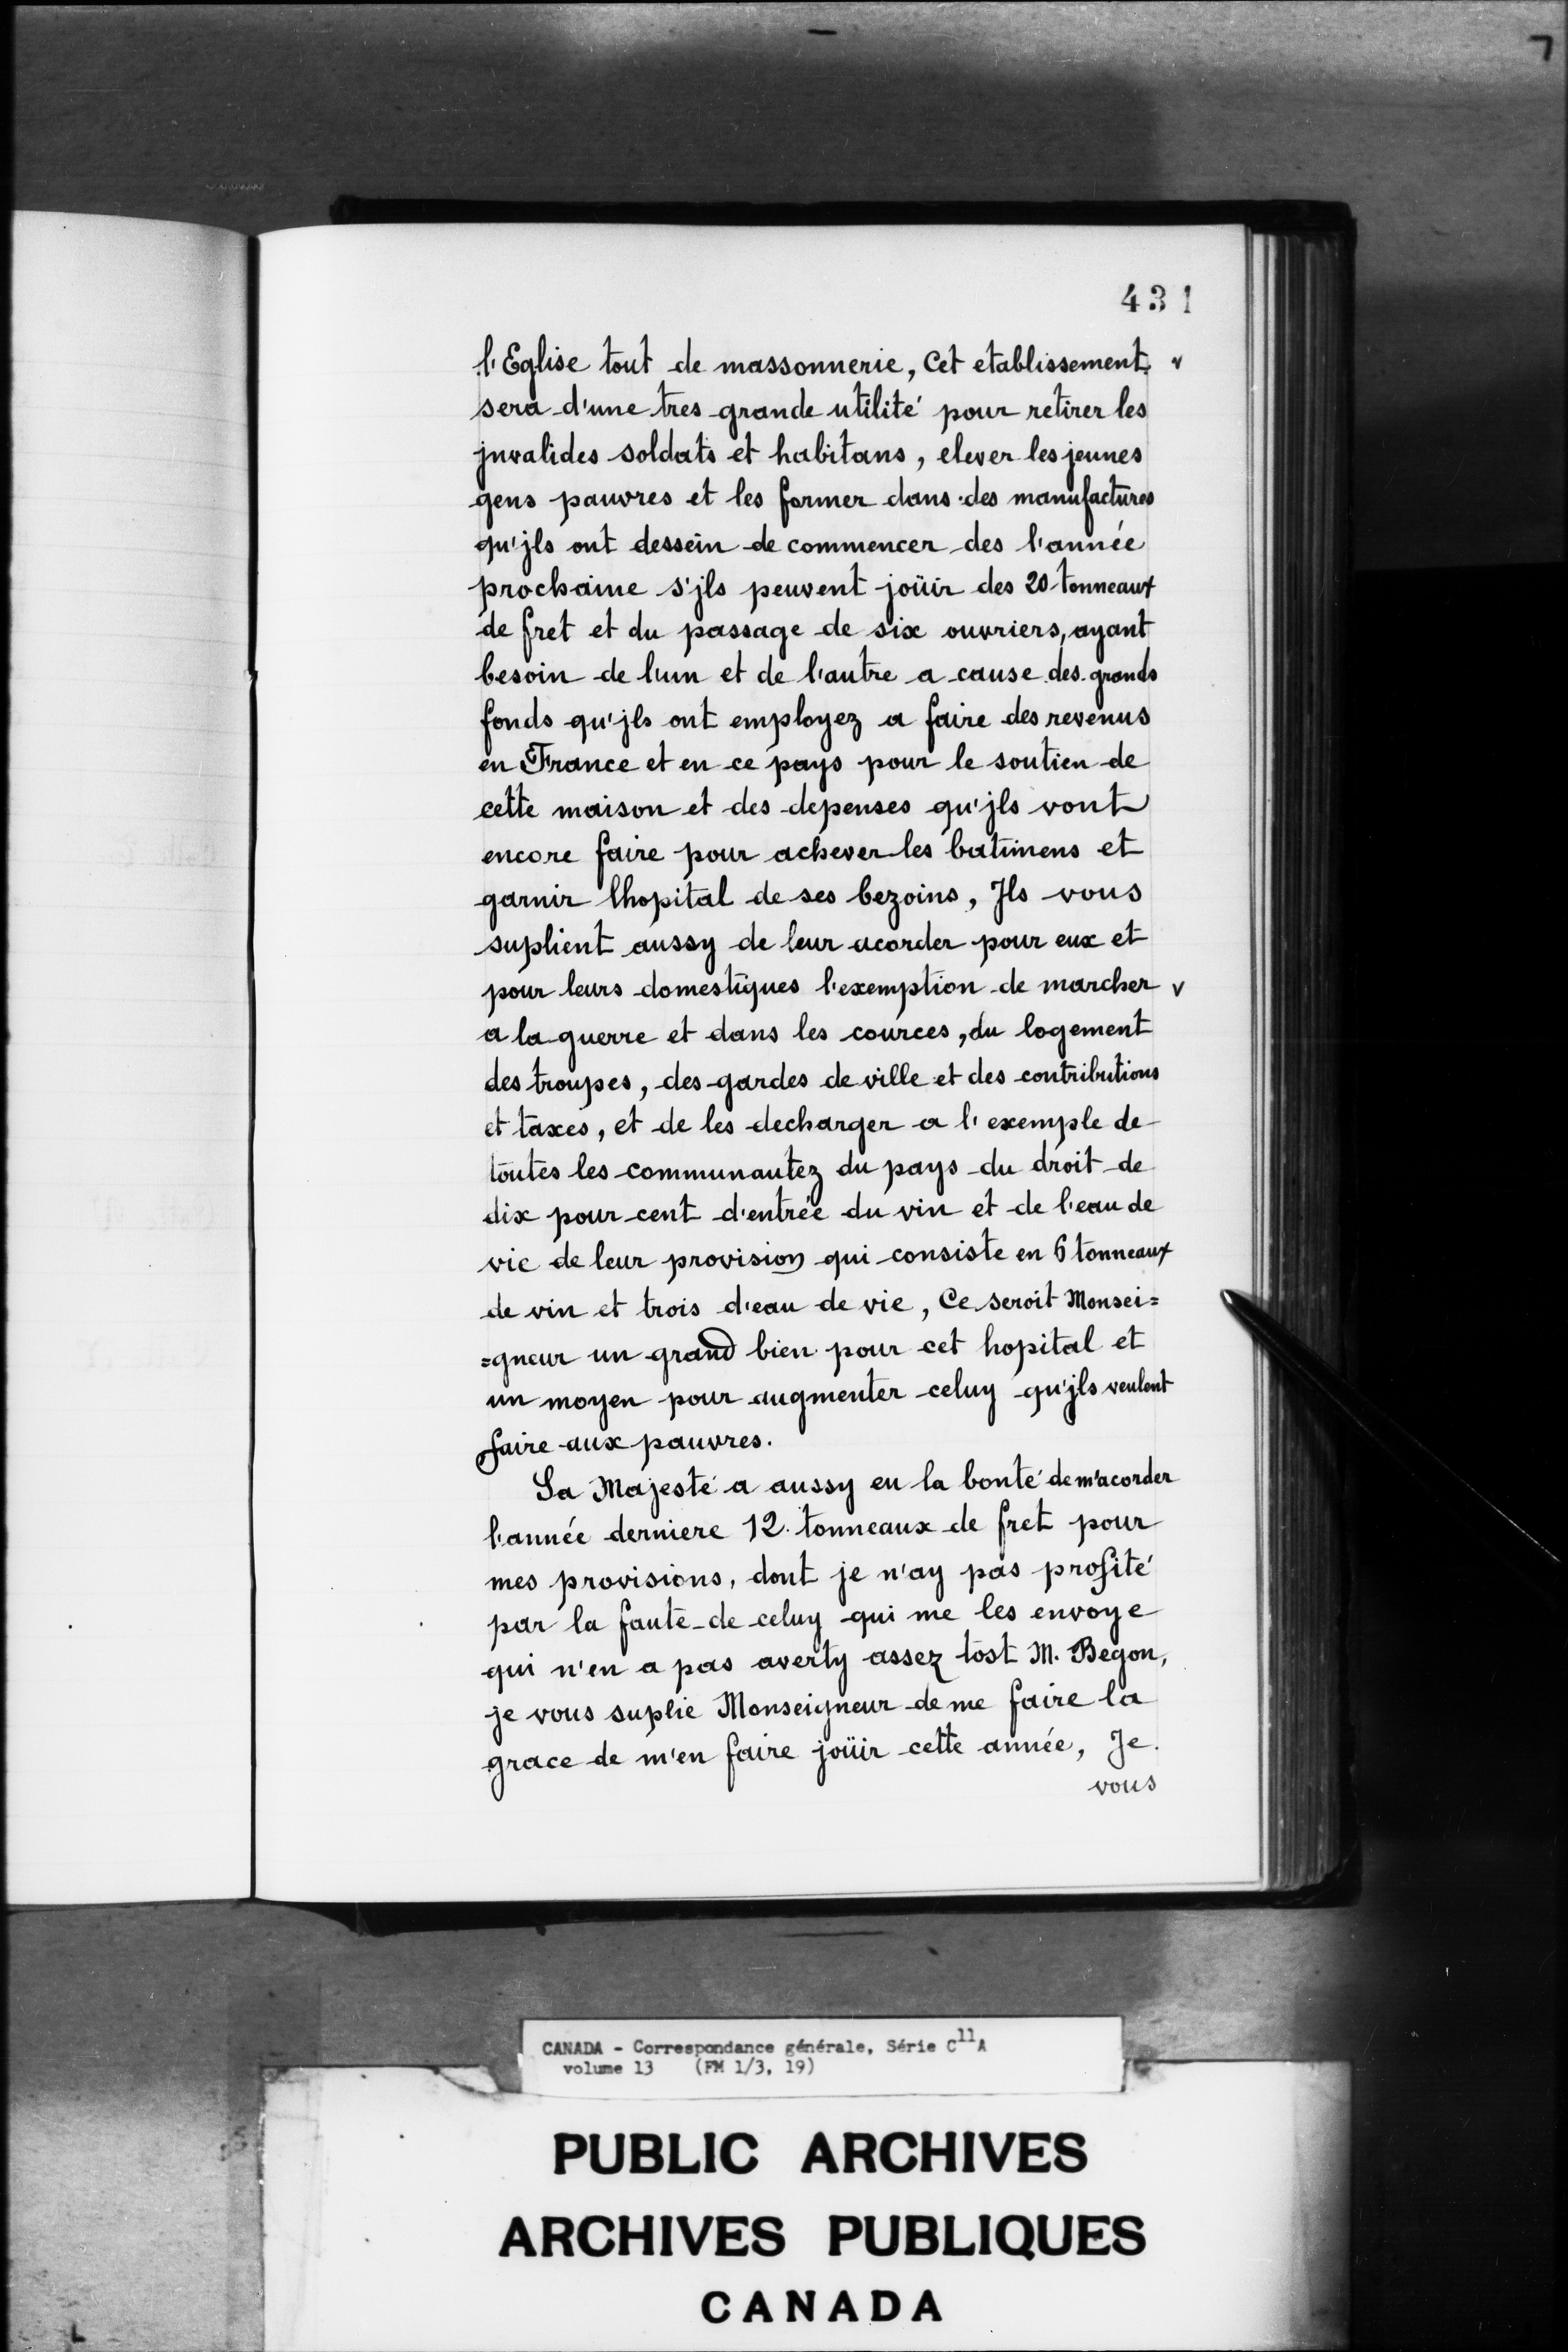 431
l'Eglise tout de massonnerie, Cet etablissement v
sera d'une tres grande utilité pour retirer les
jnvalides soldats et habitans, elever les jeunes
gens pauvres et les former dans des manufactures
qu'jls ont dessein de commencer des l'année
prochaine s'jls peuvent joüir des 20 tonneaux
de fret et du passage de six ouvriers, ayant
besoin de l'un et de l'autre a cause des grands
fonds qu'jls ont employez a faire des revenus
en France et en ce pays pour le soutien de
cette maison et des depenses qu'jls vont
encore faire pour achever les batimens et
garnir lhopital de ses bezoins, Jls vous
suplient aussy de leur acorder pour eux et
pour leurs domestiques l'exemption de marcher v
a la guerre et dans les cources, du logement
des troupes, des gardes de ville et des contributions
et taxes, et de les decharger a l'exemple de
toutes les communautez du pays du droit de
dix pour cent d'entrée du vin et de l'eau de
vie de leur provision qui consiste en 6 tonneaux
de vin et trois d'eau de vie, Ce seroit Monsei=
=gneur un grand bien pour cet hopital et
un moyen pour augmenter celuy qu'jls veulent
faire aux pauvres.
Sa Majesté a aussy eu la bonté de m'acorder
l'année derniere 12. tonneaux de fret pour
mes provisions, dont je n'ay pas profité
par la faute de celuy qui me les envoye
qui n'en a pas averty assez tost M. Begon,
je vous suplie Monseigneur de me faire la
grace de m'en faire joüir cette année, Je.
vous
CANADA - Correspondance générale, Série C11A
volume 13 (FM 1/3, 19)
PUBLIC ARCHIVES
ARCHIVES PUBLIQUES
CANADA